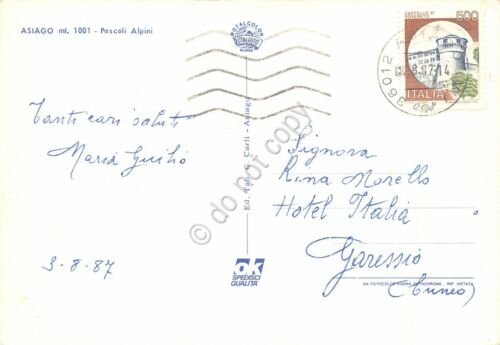 ASIAGO mt. 1001 - Pascoli Alpini
Tanti cari saluti
Maria Giulia
3-8-87
ROTALCOLOR
Ed. Tab. G. Carli - Asiago
ok
SPEDISCI
QUALITÀ
CASTELLO DI
ROVERETO
500
ITALIA
36012 A
8.87.14
Signora
Rina Morello
Hotel Italia
Garessio
(Cuneo)
do not copy